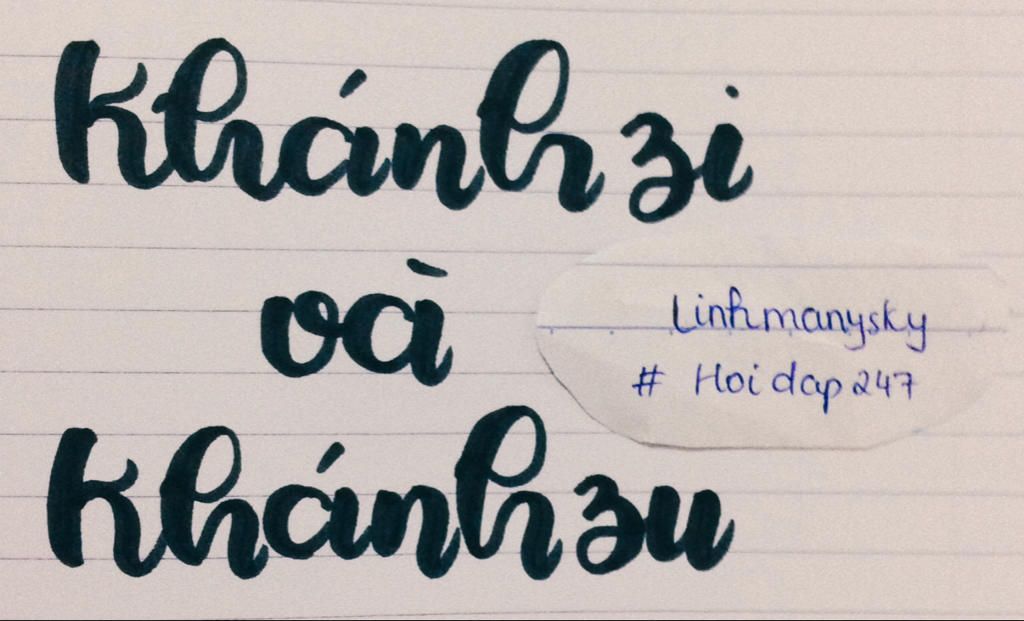 Khánh zi
và
Khánh zu
Linhmanysky
# Hoidap247